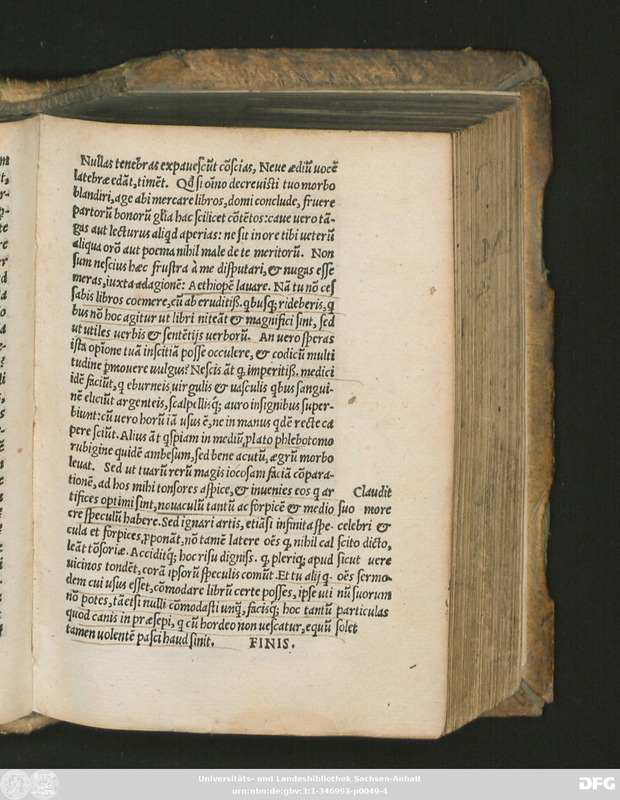 Nullas tenebras expavescūt cōscias, Neve ædiū uocē
latebræ edāt, timēt. Qd̄ si oīno decrevisti tuo morbo
blandiri, age abi mercare libros, domi conclude, fruere
partorū bonorū gl̄ia hac scilicet cōtētos: caue vero tā-
gas aut lecturus aliqd aperias: ne sit in ore tibi ueterū
aliqua orō aut poema nihil male de te meritorū. Non
sum nescius hæc frustra à me disputari, & nugas esse
meras, iuxta adagionē: Aethiopē lavare. Nā tu nō ces
sabis libros coemere, cū ab eruditiß. qbusq; rideberis, q
bus nō hoc agitur ut libri niteāt & magnifici sint, sed
ut utiles uerbis & sentētijs verborū. An uero speras
ista opīone tuā inscitiā posse occulere, & codicū multi
tudine ꝓmouere uulgus? Nescis āt q̨ imperitiß. medici
idē faciūt, q eburneis uirgulis & uasculis qbus sangui-
nē eliciūt argenteis, scalpellisq́; auro insignibus super-
biunt: cū uero horū iā usus ē, ne in manus qdē recte ca
pere sciūt. Alius āt qspiam in mediū ꝓlato phlebotomo
rubigine quidē ambesum, sed bene acutū, ægrū morbo
levat. Sed ut tuarū rerū magis iocosam faciā cōpara-
tionē, ad hos mihi tonsores aspice, & inuenies eos q ar Claudit
tifices optimi sint, nouaculū tantū ac forpicē & medio suo more
cre speculū habere. Sed ignari artis, etiāsi infinita spe- celebri &
cula et forpices ꝓponāt, nō tamē latere oēs q̨ nihil cal scito dicto,
leāt tōsoriæ. Acciditq́; hoc risu digniss. q̨ pleriq; apud sicut uere
uicinos tondēt, corā ipsorū speculis comūt. Et tu alij q- oēs sermo-
dem cui usus esset, cōmodare librū certe posses, ipse uti nū suorum
nō potes, tāetsi nulli cōmodasti unq̄, facisq́; hoc tantū particulas
quod canis in præsepi, q cū hordeo non uescatur, equū solet
tamen uolentē pasci haud sinit. FINIS.
Universitäts- und Landesbibliothek Sachsen-Anhalt
urn:nbn:de:gbv:3:1-346993-p0049-4
DFG